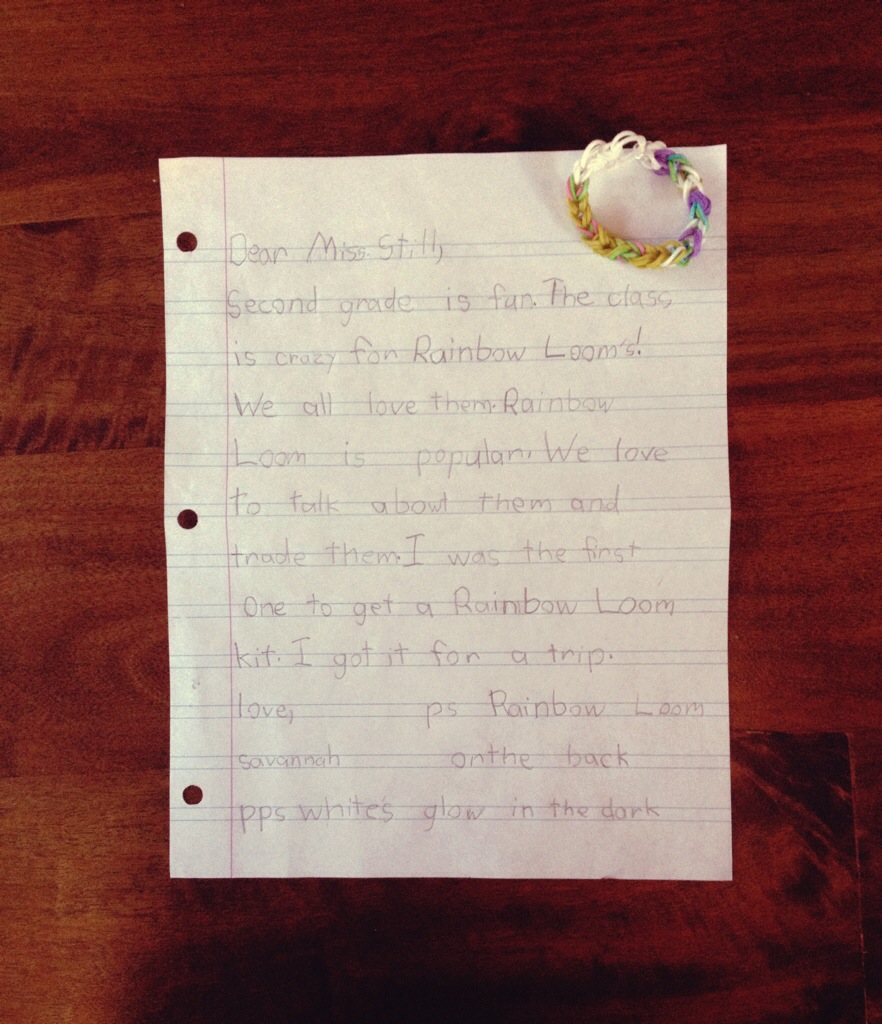 Dear Miss. Still,
Second grade is fun. The class
is crazy for Rainbow Loom's!
We all love them. Rainbow
Loom is popular. We love
to talk about them and
trade them. I was the first
One to get a Rainbow Loom
kit. I got it for a trip.
love, ps Rainbow Loom
savannah onthe back
pps white's glow in the dark